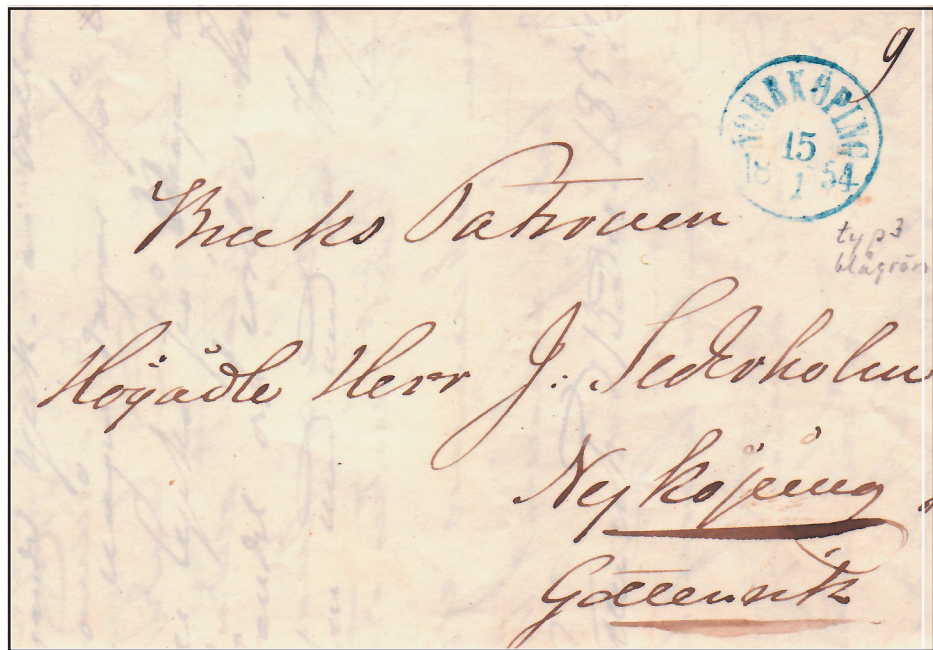 9
NORRKÖPING
15
18 1 54
typ 3
blågrön
Bruks Patronen
Högädle Herr J. Sederholm
Nyköping